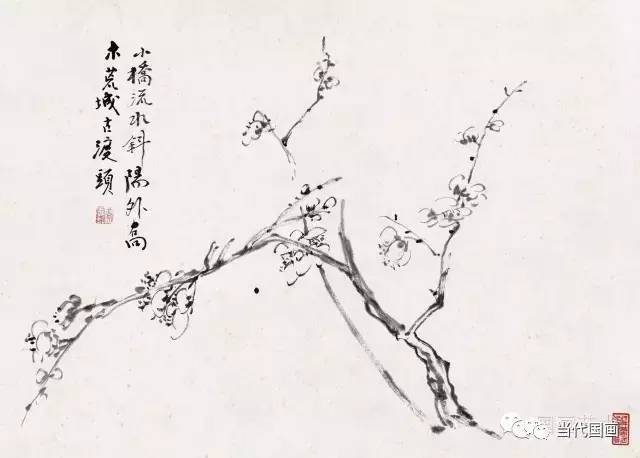 小橋流水斜陽外喬
木荒城古渡頭
当代国画